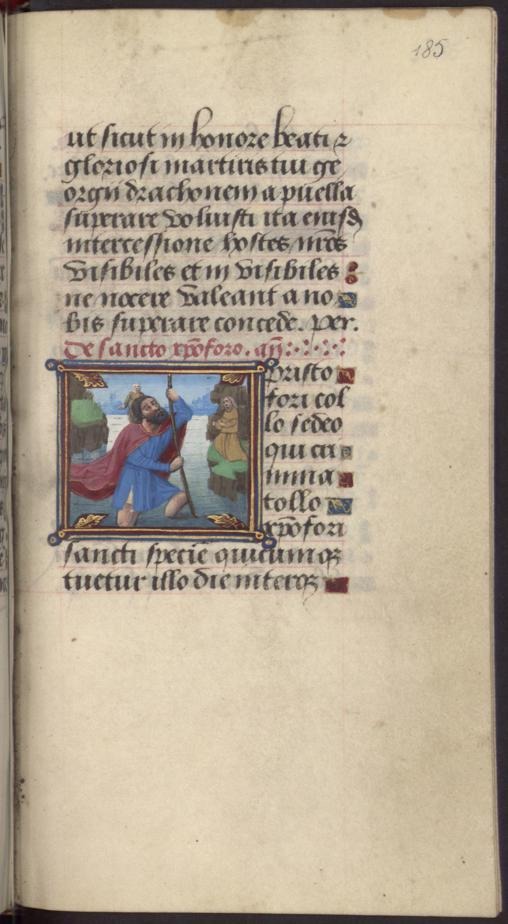 185
ut sicut in honore beati ⁊
gloriosi martiris tui ge
orgii drachonem a puella
superare voluisti ita eiusdꝫ
intercessione hostes nr̄os
visibiles et in visibiles
ne nocere valeant a no
bis superare concede. Per.
De sancto xp̄oforo. an̄
pristo
fori col
lo sedeo
qui cri
mina
tollo
xp̄ofori
sancti specie quicumqꝫ
tuetur illo die nterqꝫ